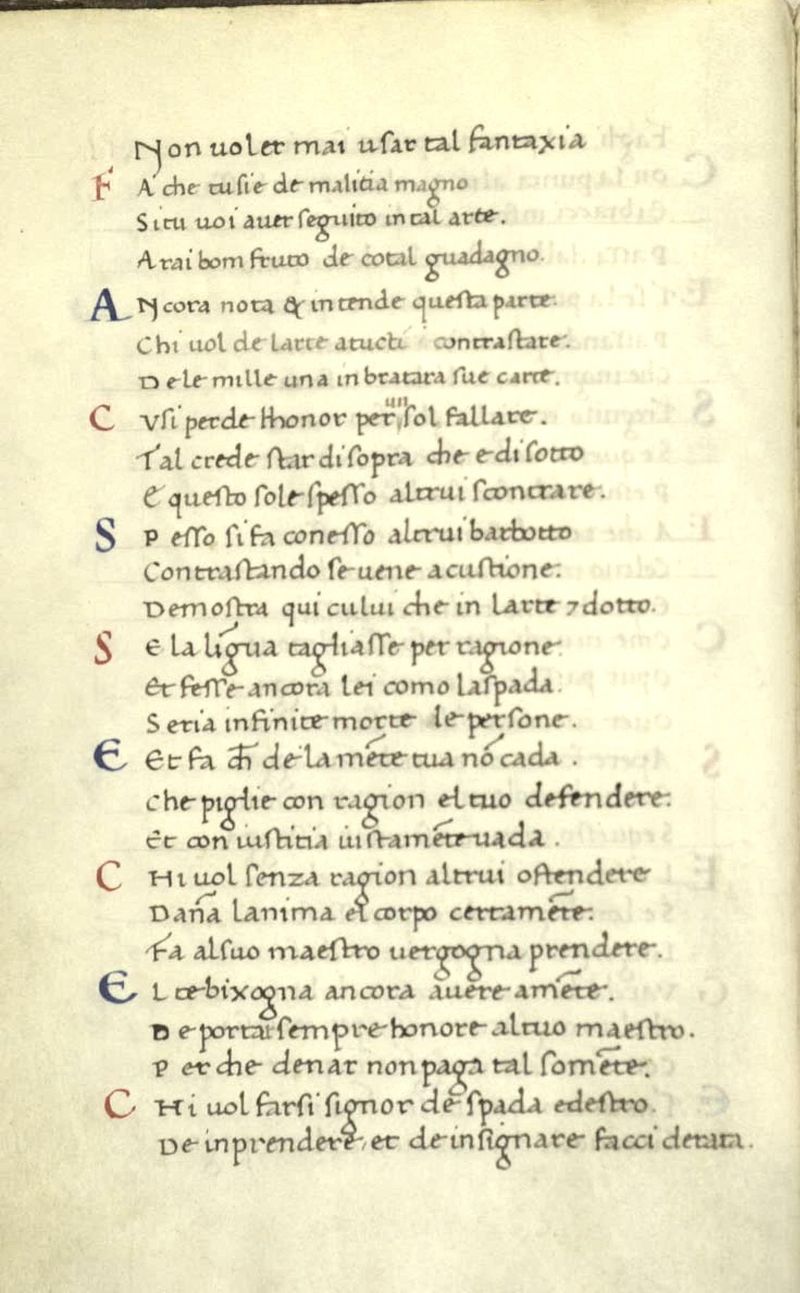 Non uoler mai usar tal fantaxia
FA che tu sie de malitia magno
Si tu uoi auer seguito in tal arte.
Arai bom fruto de cotal guadagno.
ANcora nota & intende questa parte.
Chi uol de larte a tucti contrastare.
De le mille una inbratara sue carte.
CVsi perde lhonor per un sol fallare.
Tal crede star di sopra che e di sotto
E questo sole spesso altrui scontrare.
SPesso si fa con esso altrui barbotto
Contrastando se uene a custione:
Demostra qui cului che in larte 7 dotto.
SE la līgua tagliasse per ragione
Et fesse ancora lei como la spada.
Seria infinite morte le persone.
EEt fa ch̄ de la mēte tua nō cada .
Che piglie con ragion el tuo defendere:
Et con iustitia iustamēte uada .
CHi uol senza ragion altrui oftendere
Dan̄a lanima el corpo certamēte:
Fa al suo maestro uergogna prendere.
EL te bixogna ancora auere a mēte.
De portar sempre honore al tuo maestro.
Perche denar non paga tal somēte.
CHi uol farsi signor de spada e destro.
De inprendere et de insignare facci derata.